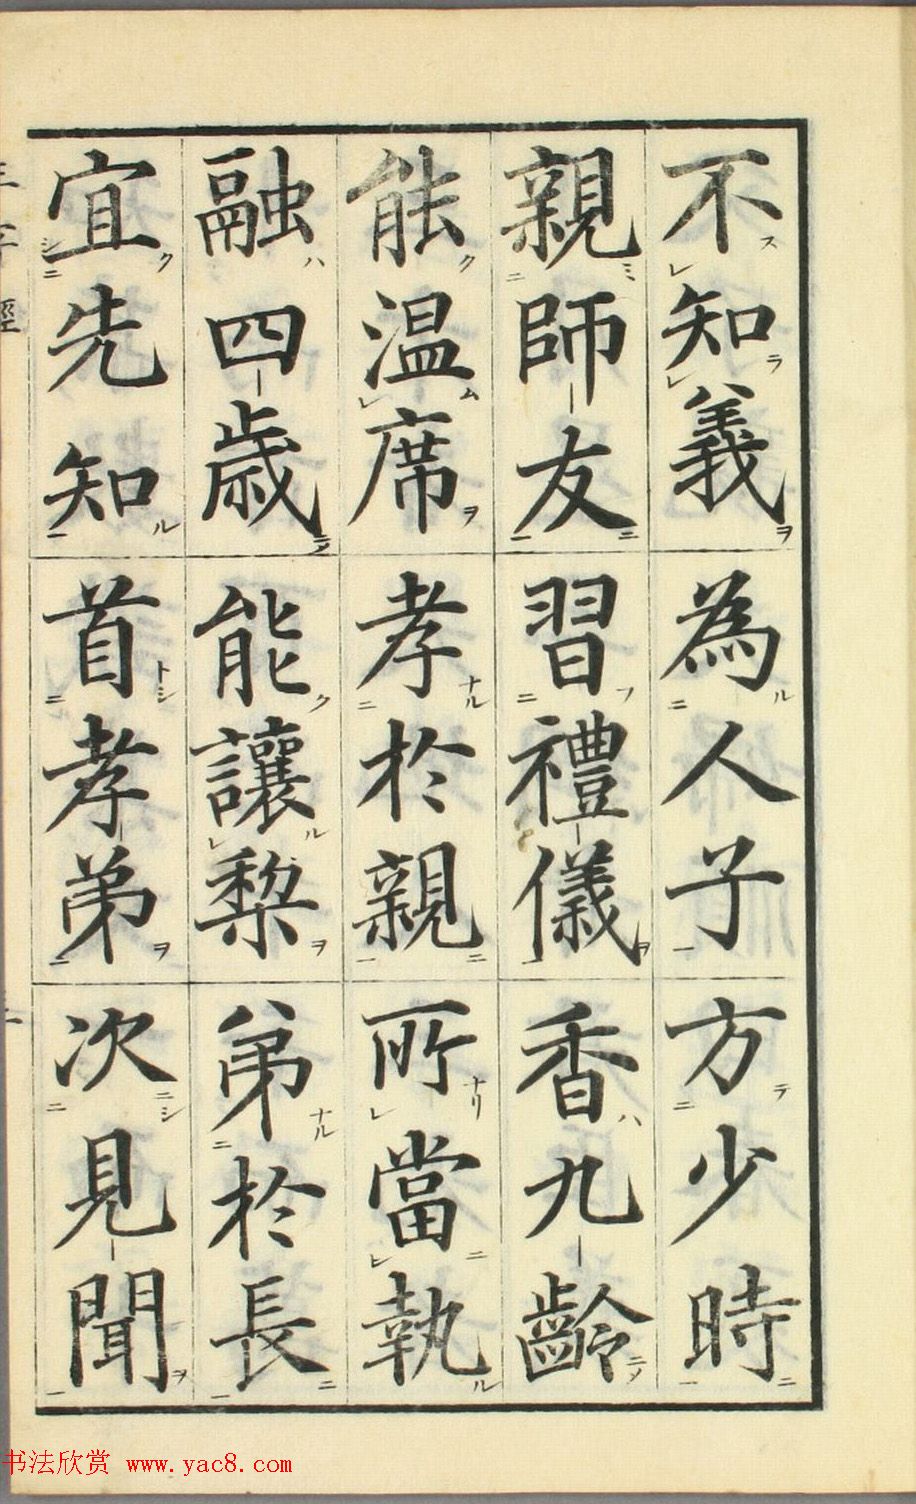 不知義 為人子 方少時
親師友 習禮儀 香九齡
能温席 孝於親 所當執
融四歳 能讓棃 弟於長
宜先知 首孝弟 次見聞
书法欣赏 www.yac8.com